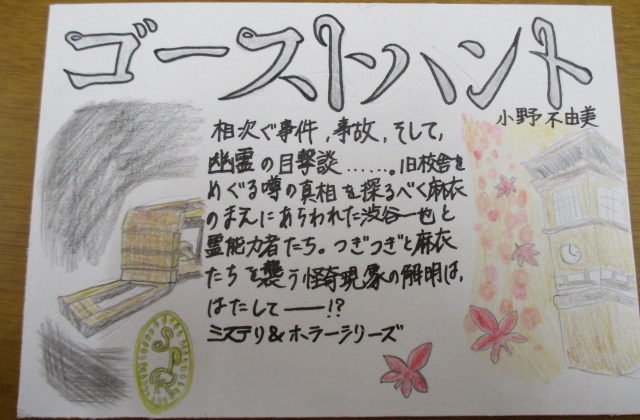 ゴーストハント
小野不由美
相次ぐ事件,事故,そして,
幽霊の目撃談……。旧校舎を
めぐる噂の真相を探るべく麻衣
のまえにあらわれた渋谷一也と
霊能力者たち。つぎつぎと麻衣
たちを襲う怪奇現象の解明は,
はたして――!?
ミステリ&ホラーシリーズ